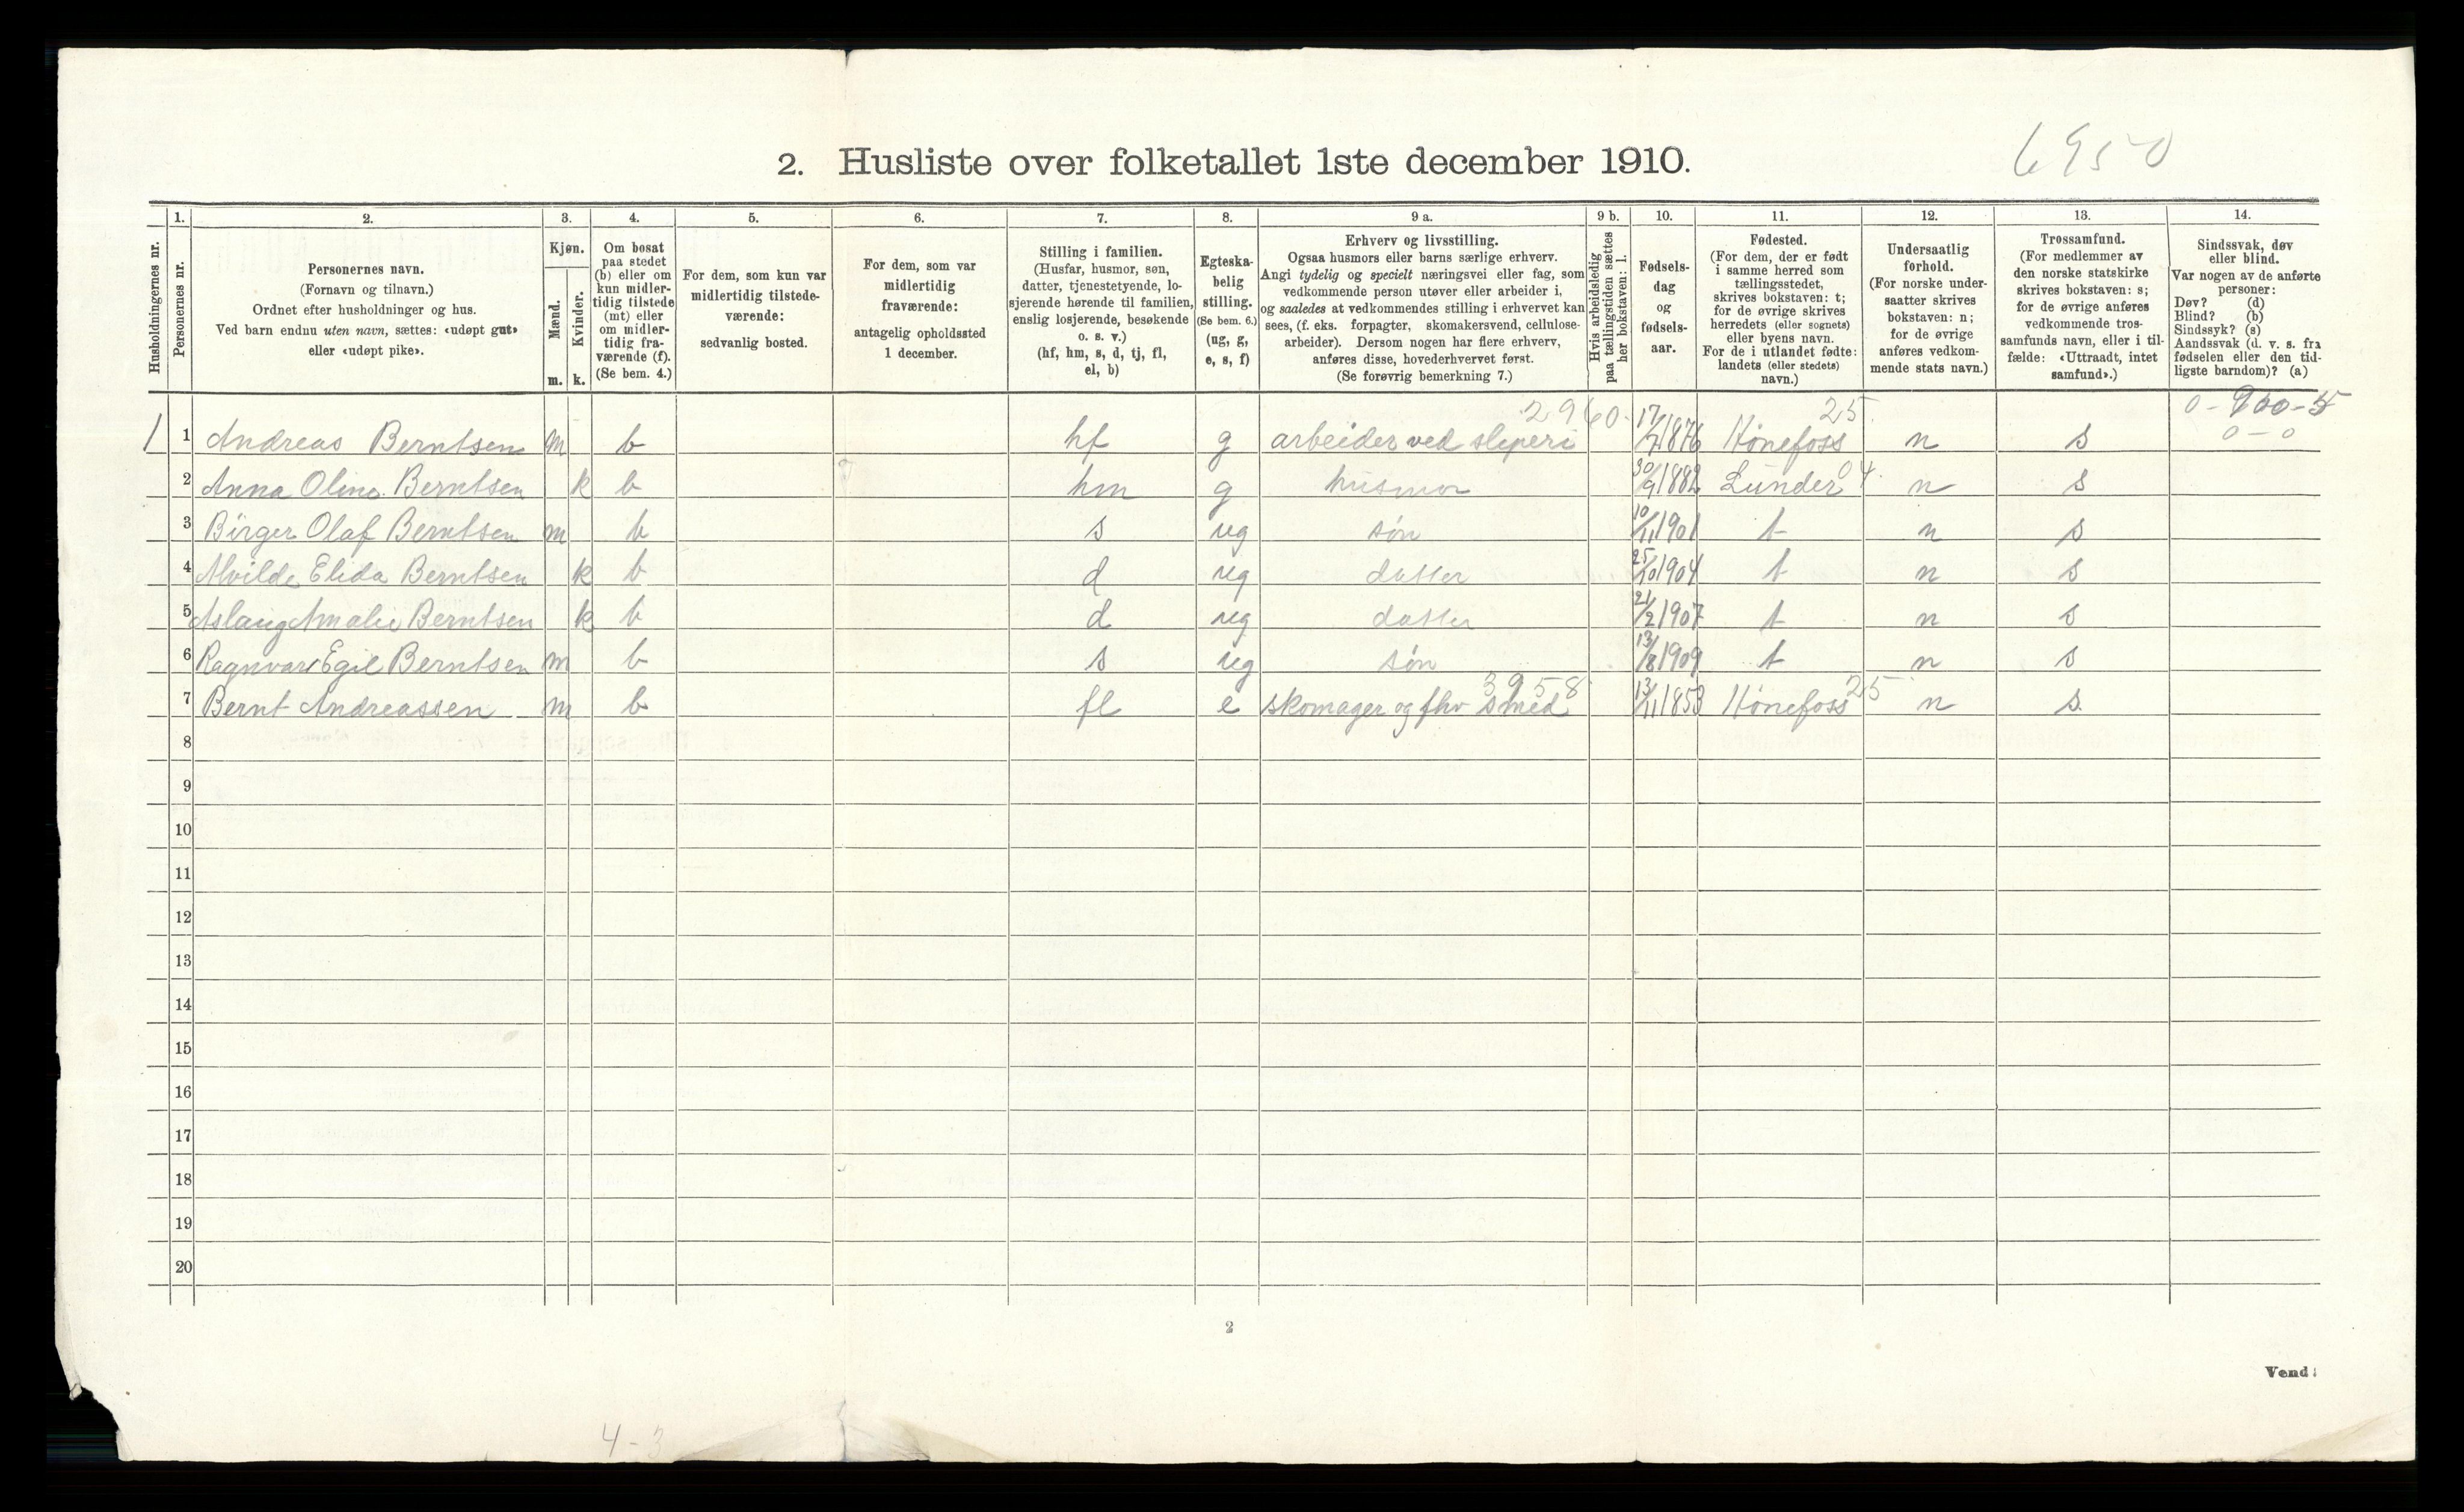 6950
2. Husliste over folketallet 1ste december 1910.
Husholdningernes nr.
1.
Personernes nr.
2.
Personernes navn.
(Fornavn og tilnavn.)
Ordnet efter husholdninger og hus.
Ved barn endnu uten navn, sættes: «udøpt gut»
eller «udøpt pike».
3.
Kjøn.
Mænd.
Kvinder.
m. k.
4.
Om bosat
paa stedet
(b) eller om
kun midler-
tidig tilstede
(mt) eller
om midler-
tidig fra-
værende (f).
(Se bem. 4.)
5.
For dem, som kun var
midlertidig tilstede-
værende:
sedvanlig bosted.
6.
For dem, som var
midlertidig
fraværende:
antagelig opholdssted
1 december.
7.
Stilling i familien.
(Husfar, husmor, søn,
datter, tjenestetyende, lo-
sjerende hørende til familien,
enslig losjerende, besøkende
o. s. v.)
(hf, hm, s, d, tj, fl,
el, b)
8.
Egteska-
belig
stilling.
(Se bem. 6.)
(ug, g,
e, s, f)
9 a.
Erhverv og livsstilling.
Ogsaa husmors eller barns særlige erhverv.
Angi tydelig og specielt næringsvei eller fag, som
vedkommende person utøver eller arbeider i,
og saaledes at vedkommendes stilling i erhvervet kan
sees, (f. eks. forpagter, skomakersvend, cellulose-
arbeider). Dersom nogen har flere erhverv,
anføres disse, hovederhvervet først.
(Se forøvrig bemerkning 7.)
9 b.
Hvis arbeidsledig
paa tællingstiden sættes
her bokstaven: l.
10.
Fødsels-
dag
og
fødsels-
aar.
11.
Fødested.
(For dem, der er født
i samme herred som
tællingsstedet,
skrives bokstaven: t;
for de øvrige skrives
herredets (eller sognets)
eller byens navn.
For de i utlandet fødte:
landets (eller stedets)
navn.)
12.
Undersaatlig
forhold.
(For norske under-
saatter skrives
bokstaven: n;
for de øvrige
anføres vedkom-
mende stats navn.)
13.
Trossamfund.
(For medlemmer av
den norske statskirke
skrives bokstaven: s;
for de øvrige anføres
vedkommende tros-
samfunds navn, eller i til-
fælde: «Uttraadt, intet
samfund».)
14.
Sindssvak, døv
eller blind.
Var nogen av de anførte
personer:
Døv? (d)
Blind? (b)
Sindssyk? (s)
Aandssvak (d. v. s. fra
fødselen eller den tid-
ligste barndom)? (a)
2960. 25
1 1 Andreas Berntsen m b hf g arbeider ved sliperi 17/7 1876 Hønefoss n s 0-0
2 Anna Oline Berntsen k b hm g husmor 30/9 1882 Lunder 04. n s
3 Birger Olaf Berntsen m b s ug søn 10/11 1901 t n s
4 Alvilde Elida Berntsen k b d ug datter 25/10 1904 t n s
5 Aslaug Amalie Berntsen k b d ug datter 21/2 1907 t n s
6 Ragnvar Egil Berntsen m b s ug søn 13/8 1909 t n s
3958. 25
7 Bernt Andreassen m b fl e skomager og fhv smed 13/11 1853 Hønefoss n s.
8
9
10
11
12
13
14
15
16
17
18
19
20
2
Vend!
4-3